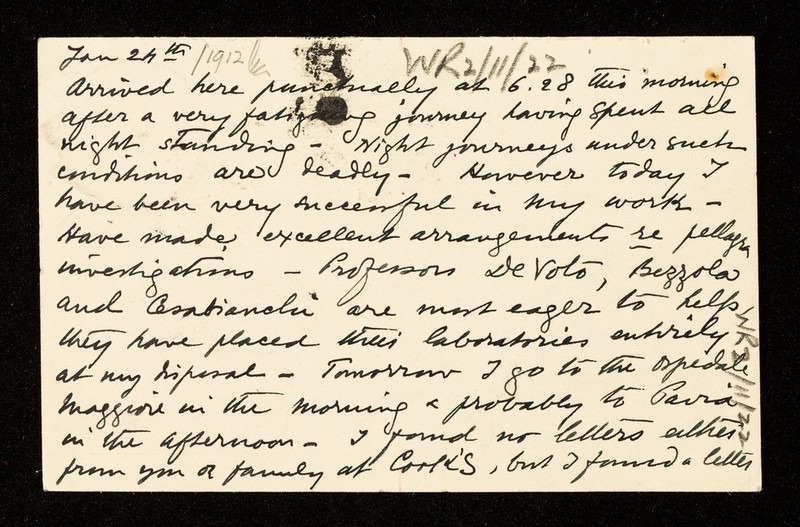 Jan 24th /1912/
WR2/11/22
Arrived here punctually at 6.28 this morning
after a very fatiguing journey having spent all
night standing - Night journeys under such
conditions are deadly - However today I
have been very successful in my work -
Have made excellent arrangements re pellagra
investigations - Professors De Voto, Bezzola
and are most eager to help
they have placed their laboratories entirely
at my disposal - Tomorrow I go to the Ospedale
Maggiore in the morning & probably to Pavia
in the afternoon - I found no letters either
from you or family at Cook's, but I found a letter
WR2/11/22